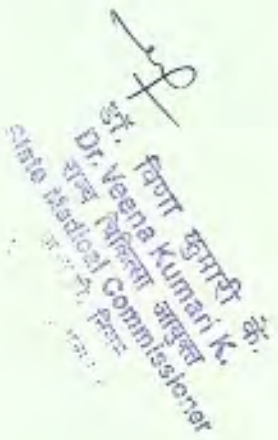 डॉ. विणा कुमारी के.
Dr. Veena Kumari K.
राज्य चिकित्सा आयुक्त
State Medical Commissioner